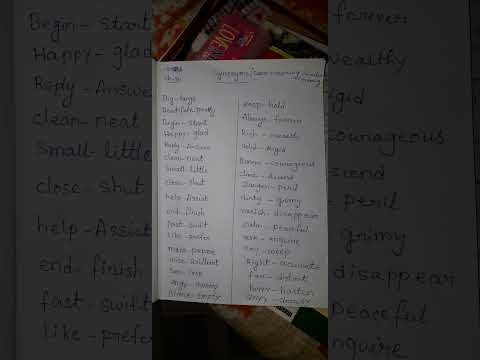 LOVE
Synonyms / Same meaning
Big - large
Beautiful - pretty
Begin - start
Happy - glad
Reply - Answer
clean - neat
Small - little
close - shut
help - Assist
end - finish
fast - swift
like - prefer
make - prepare
angry - 
Blank - empty
keep - hold
Always - forever
Rich - wealthy
solid - rigid
Brave - courageous
Danger - peril
dirty - grimy
vanish - disappear
calm - peaceful
ask - enquire
cry - weep
Right - accurate
far - distant
hurry - hasten
Begin - start
Happy - glad
Reply - Answer
clean - neat
Small - little
close - shut
help - Assist
end - finish
fast - swift
like - prefer
forever
wealthy
rigid
courageous
peril
grimy
disappear
peaceful
enquire